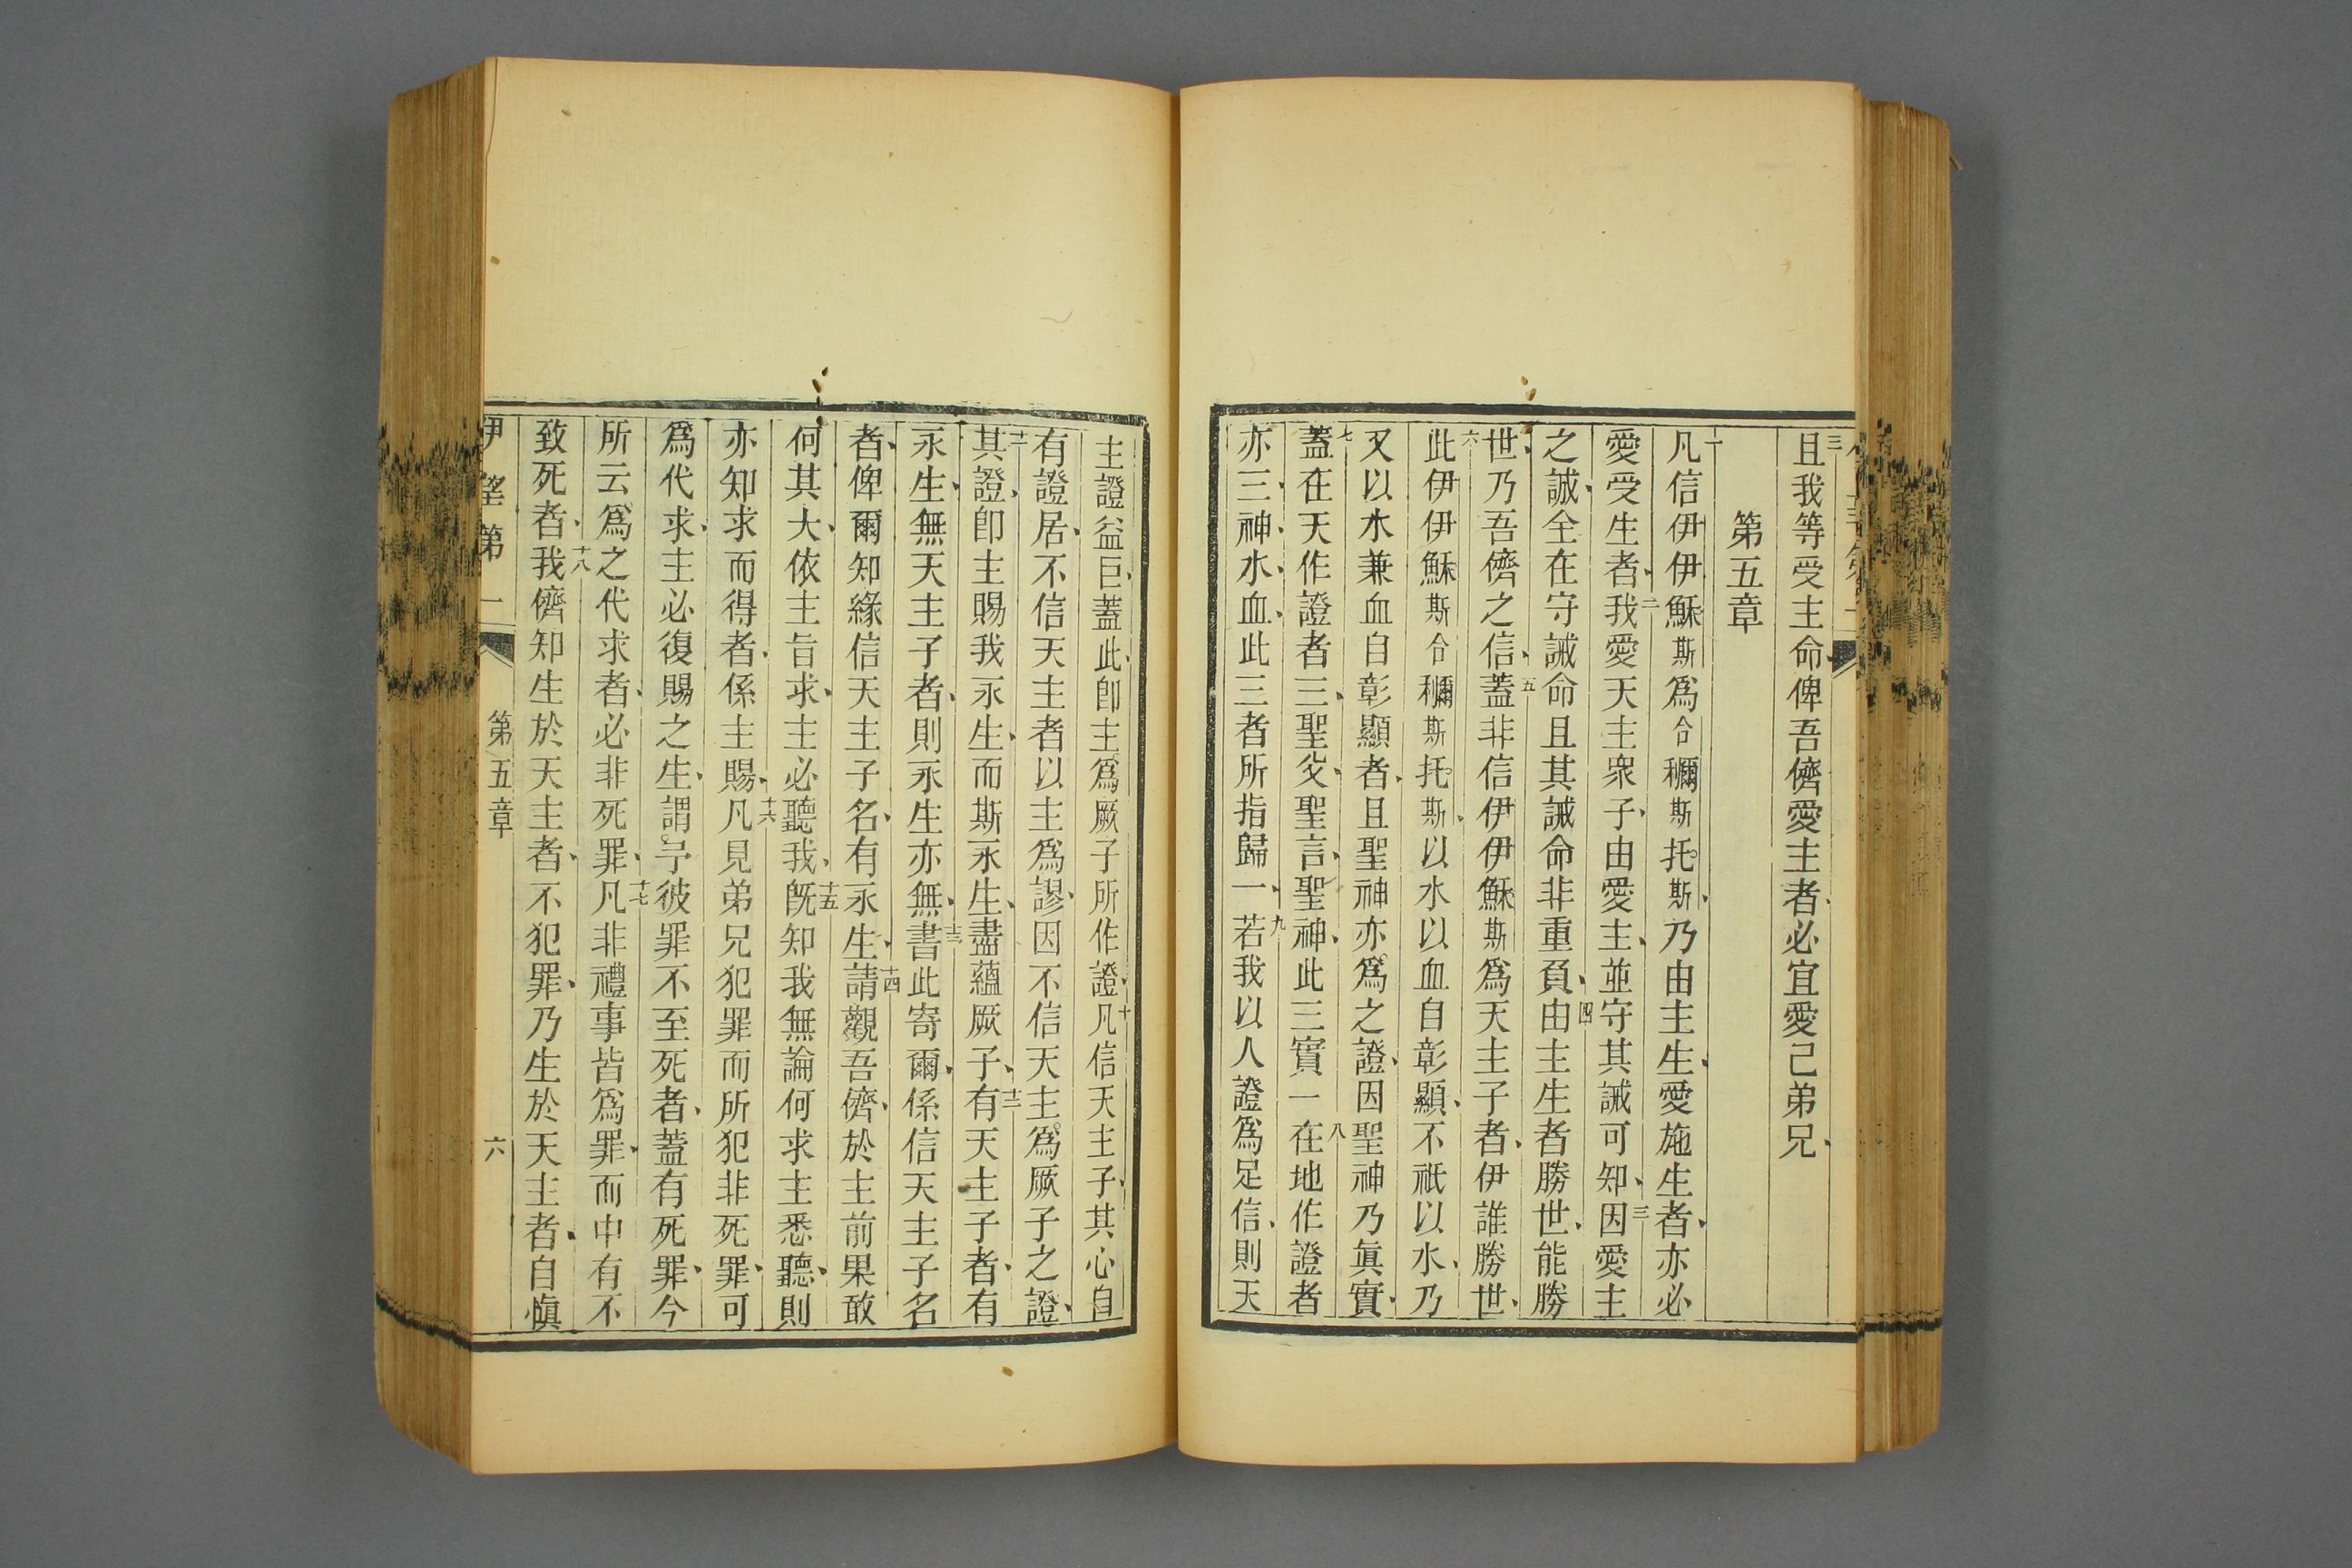 且我等受主命俾吾儕愛主者必宜愛己弟兄
第五章
一凡信伊伊穌斯爲合穪斯托斯乃由主生愛施生者亦必
愛受生者二我愛天主衆子由愛主並守其誡可知三因愛主
之誠全在守誡命且其誡命非重負四由主生者勝世能勝
世乃吾儕之信五蓋非信伊伊穌斯爲天主子者伊誰勝世
六此伊伊穌斯合穪斯托斯以水以血自彰顯不祇以水乃
又以水兼血自彰顯者且聖神亦爲之證因聖神乃眞實
七蓋在天作證者三聖父聖言聖神此三實一八在地作證者
亦三神水血此三者所指歸一九若我以人證爲足信則天
主證益巨蓋此卽主爲厥子所作證十凡信天主子其心自
有證居不信天主者以主爲謬因不信天主爲厥子之證
十一其證卽主賜我永生而斯永生盡蘊厥子十二有天主子者有
永生無天主子者則永生亦無十三書此寄爾係信天主子名
者俾爾知緣信天主子名有永生十四請觀吾儕於主前果敢
何其大依主旨求主必聽我十五旣知我無論何求主悉聽則
亦知求而得者係主賜十六凡見弟兄犯罪而所犯非死罪可
爲代求主必復賜之生謂予彼罪不至死者蓋有死罪今
所云爲之代求者必非死罪十七凡非禮事皆爲罪而中有不
致死者十八我儕知生於天主者不犯罪乃生於天主者自愼
伊望第一
第五章
六